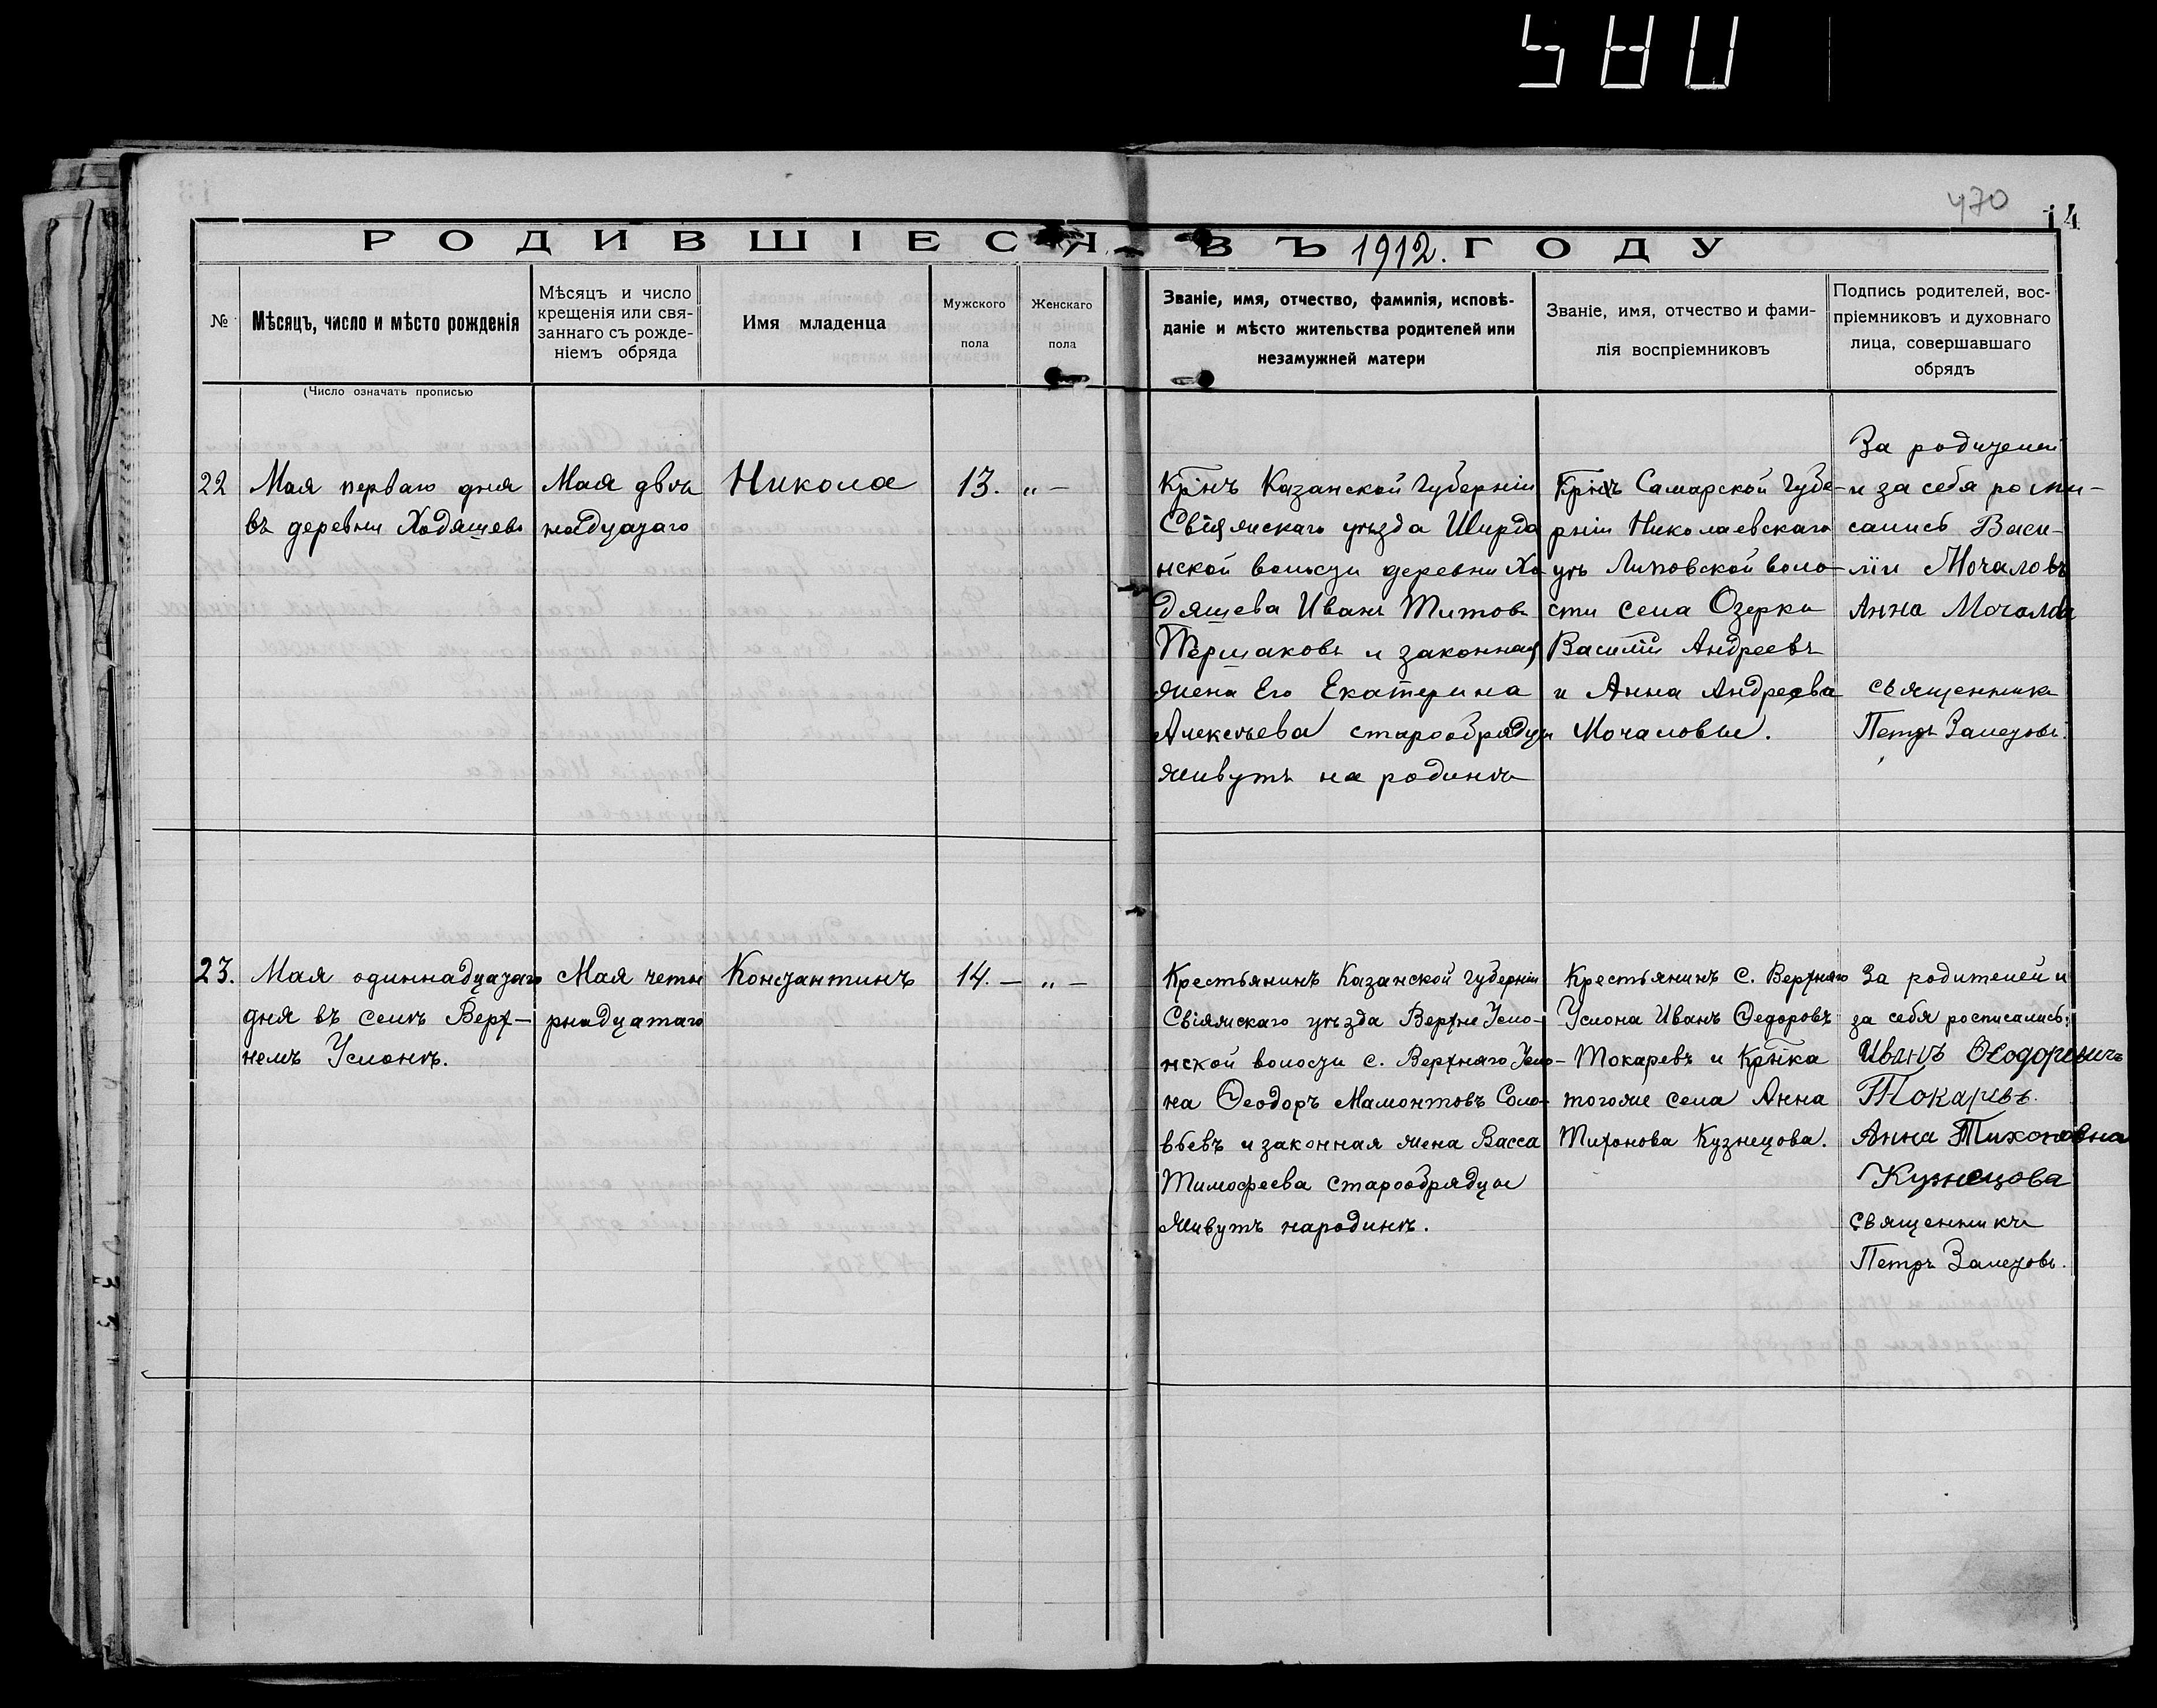 470
14
РОДИВШІЕСЯ ВЪ 1912. ГОДУ
№
Мѣсяцъ, число и мѣсто рожденія
Мѣсяцъ и число
крещенія или свя-
заннаго съ рожде-
ніемъ обряда
Имя младенца
Мужского
пола
Женскаго
пола
Званіе, имя, отчество, фамилія, исповѣ-
даніе и мѣсто жительства родителей или
незамужней матери
Званіе, имя, отчество и фами-
лія воспріемниковъ
Подпись родителей, вос-
пріемниковъ и духовнаго
лица, совершавшаго
обрядъ
(Число означать прописью
22
Мая перваго дня
въ деревни Ходяшево
Мая двѣ
надцатаго
Никола
13. „ —
Крінъ Казанской Губерніи
Свіяжскаго уѣзда Ширда
нской волости деревни Хо
дяшева Иванъ Титовъ
Першаковъ и законная
жена Его Екатерина
Алексѣева старообрядцы
живутъ на родинѣ
Крінъ Самарской Губе-
рніи Николаевскаго
уѣ Липовской воло-
сти села Озерки
Василій Андреевъ
и Анна Андреева
Мочаловы.
За родителей
и за себя роспи-
сались Васи-
лій Мочаловъ
Анна Мочалова
священникъ
Петръ Залетовъ.
23.
Мая одиннадцатаго
дня въ селѣ Верх-
немъ Услонѣ.
Мая четы
рнадцатаго
Константинъ
14. — „ —
Крестьянинъ Казанской губерніи
Свіяжскаго уѣзда Верхне Усло-
нской волости с. Верхняго Усло-
на Ѳеодоръ Мамонтовъ Соло-
вьевъ и законная жена Васса
Тимофеева старообрядцы
Живутъ народинѣ.
Крестьянинъ с. Верхняго
Услона Иванъ Ѳедоровъ
Токаревъ и Крѣнка
тогоже села Анна
Тихонова Кузнецова.
За родителей и
за себя росписались:
Иванъ Ѳеодоровичъ
Токаревъ.
Анна Тихоновна
Кузнецова
Священникъ
Петръ Залетовъ.